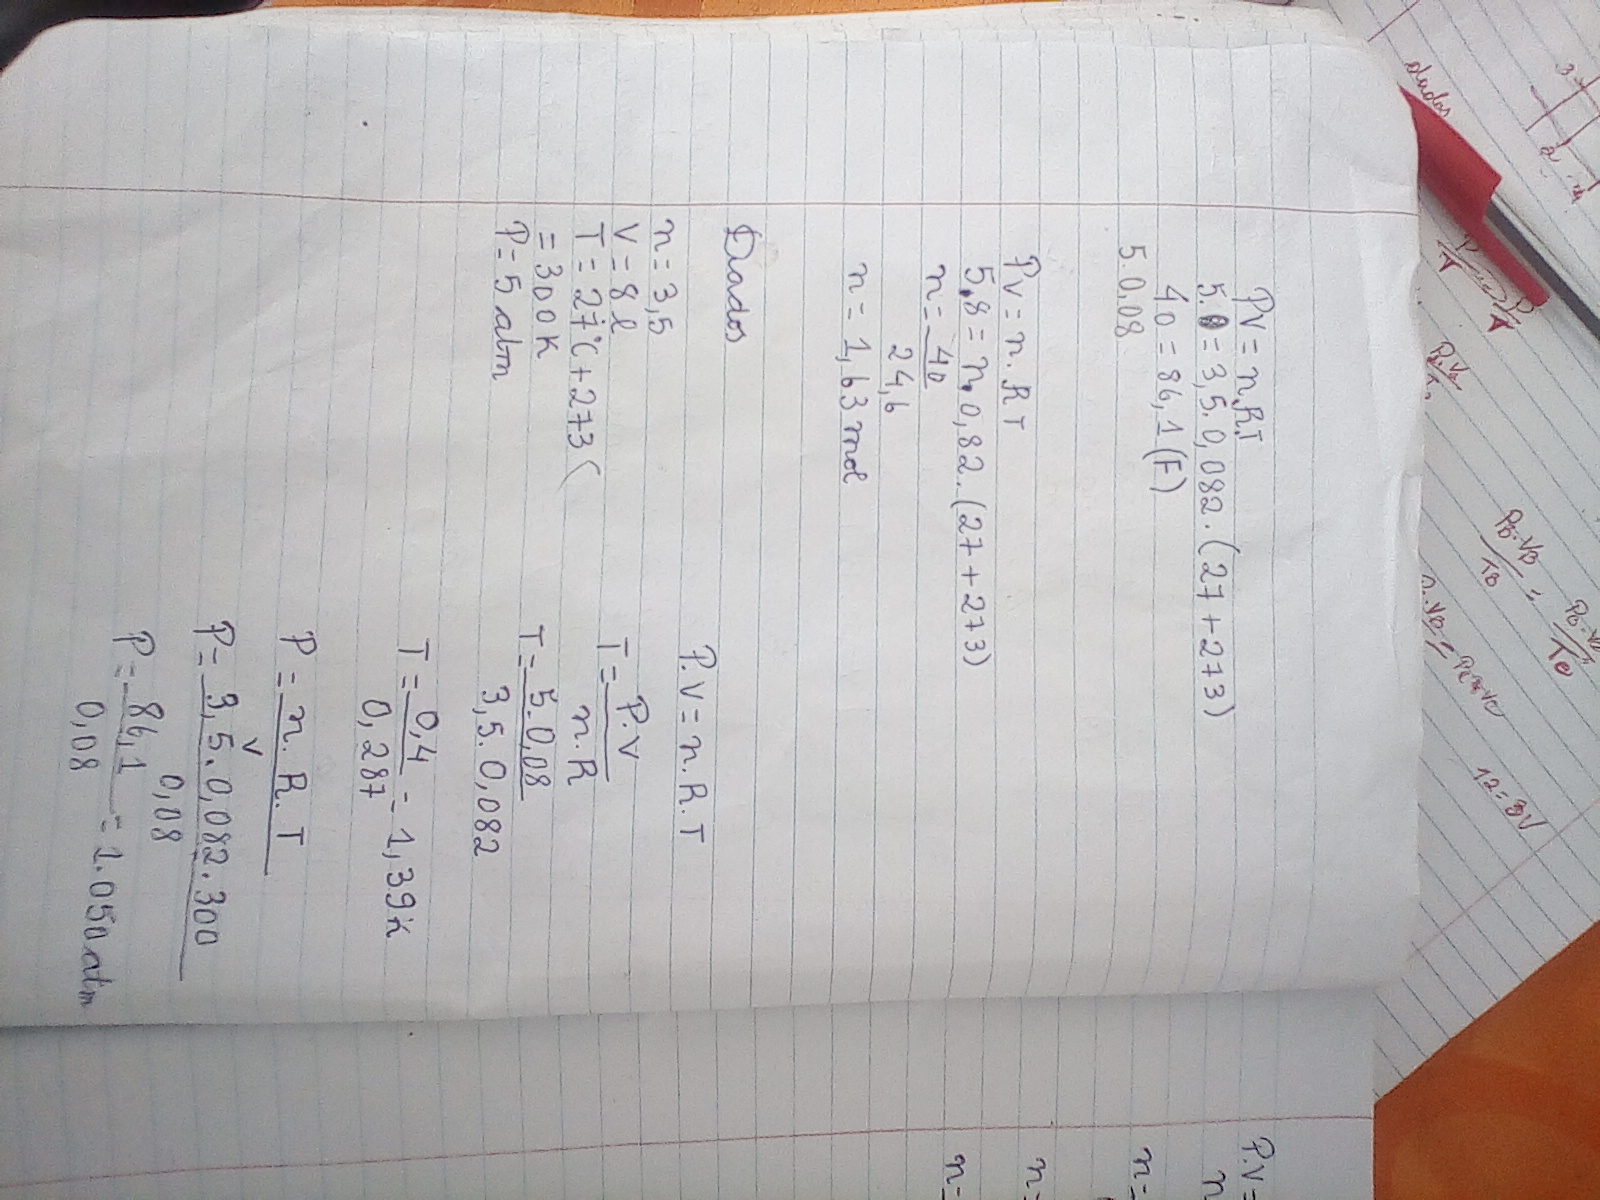 PV = n.R.T
5.8 = 3,5.0,082.(27+273)
40 = 86,1 (F)
5.0,08
PV = n.RT
5.8 = n.0,82.(27+273)
n = 40
24,6
n = 1,63 mol
Dados
n = 3,5
V = 8 l
T = 27°C + 273 (
= 300 K
P = 5 atm
P.V = n.R.T
T = P.V
n.R
T = 5.0,08
3,5.0,082
T = 0,4 = 1,39 K
0,287
P = n.R.T
V
P = 3,5.0,082.300
0,08
P = 86,1 = 1.050 atm
0,08
P.V =
n
n =
n =
n =
dados
3
2
P
T
P
T
PB.VB
TB
=
12 = 3V